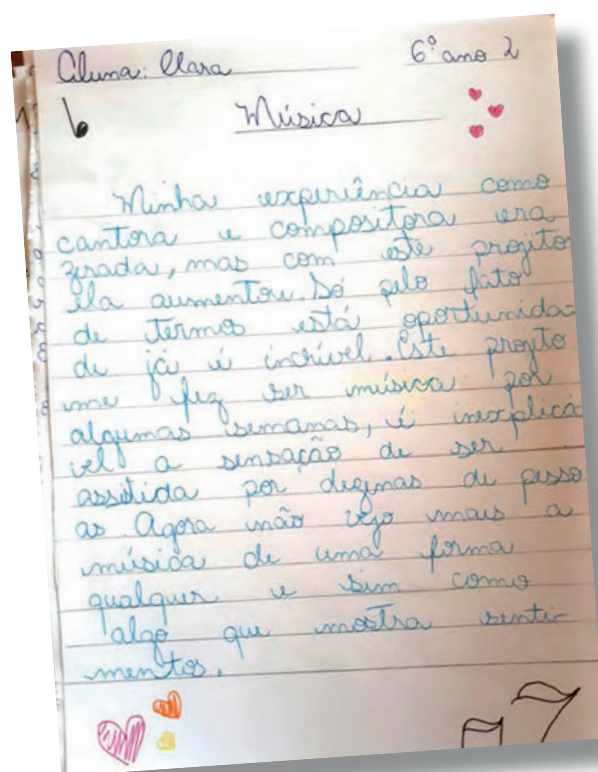 Aluna: Clara 6º ano 2
Música
Minha experiência como
cantora e compositora era
zerada, mas com este projeto
ela aumentou. Só pelo fato
de termos está oportunida-
de já é incrível. Este projto
me fez ser música por
algumas semanas, é inexplicá
vel a sensação de ser
assitida por dezenas de pesso
as. Agora não vejo mais a
música de uma forma
qualquer e sim como
algo que mostra senti-
mentos.